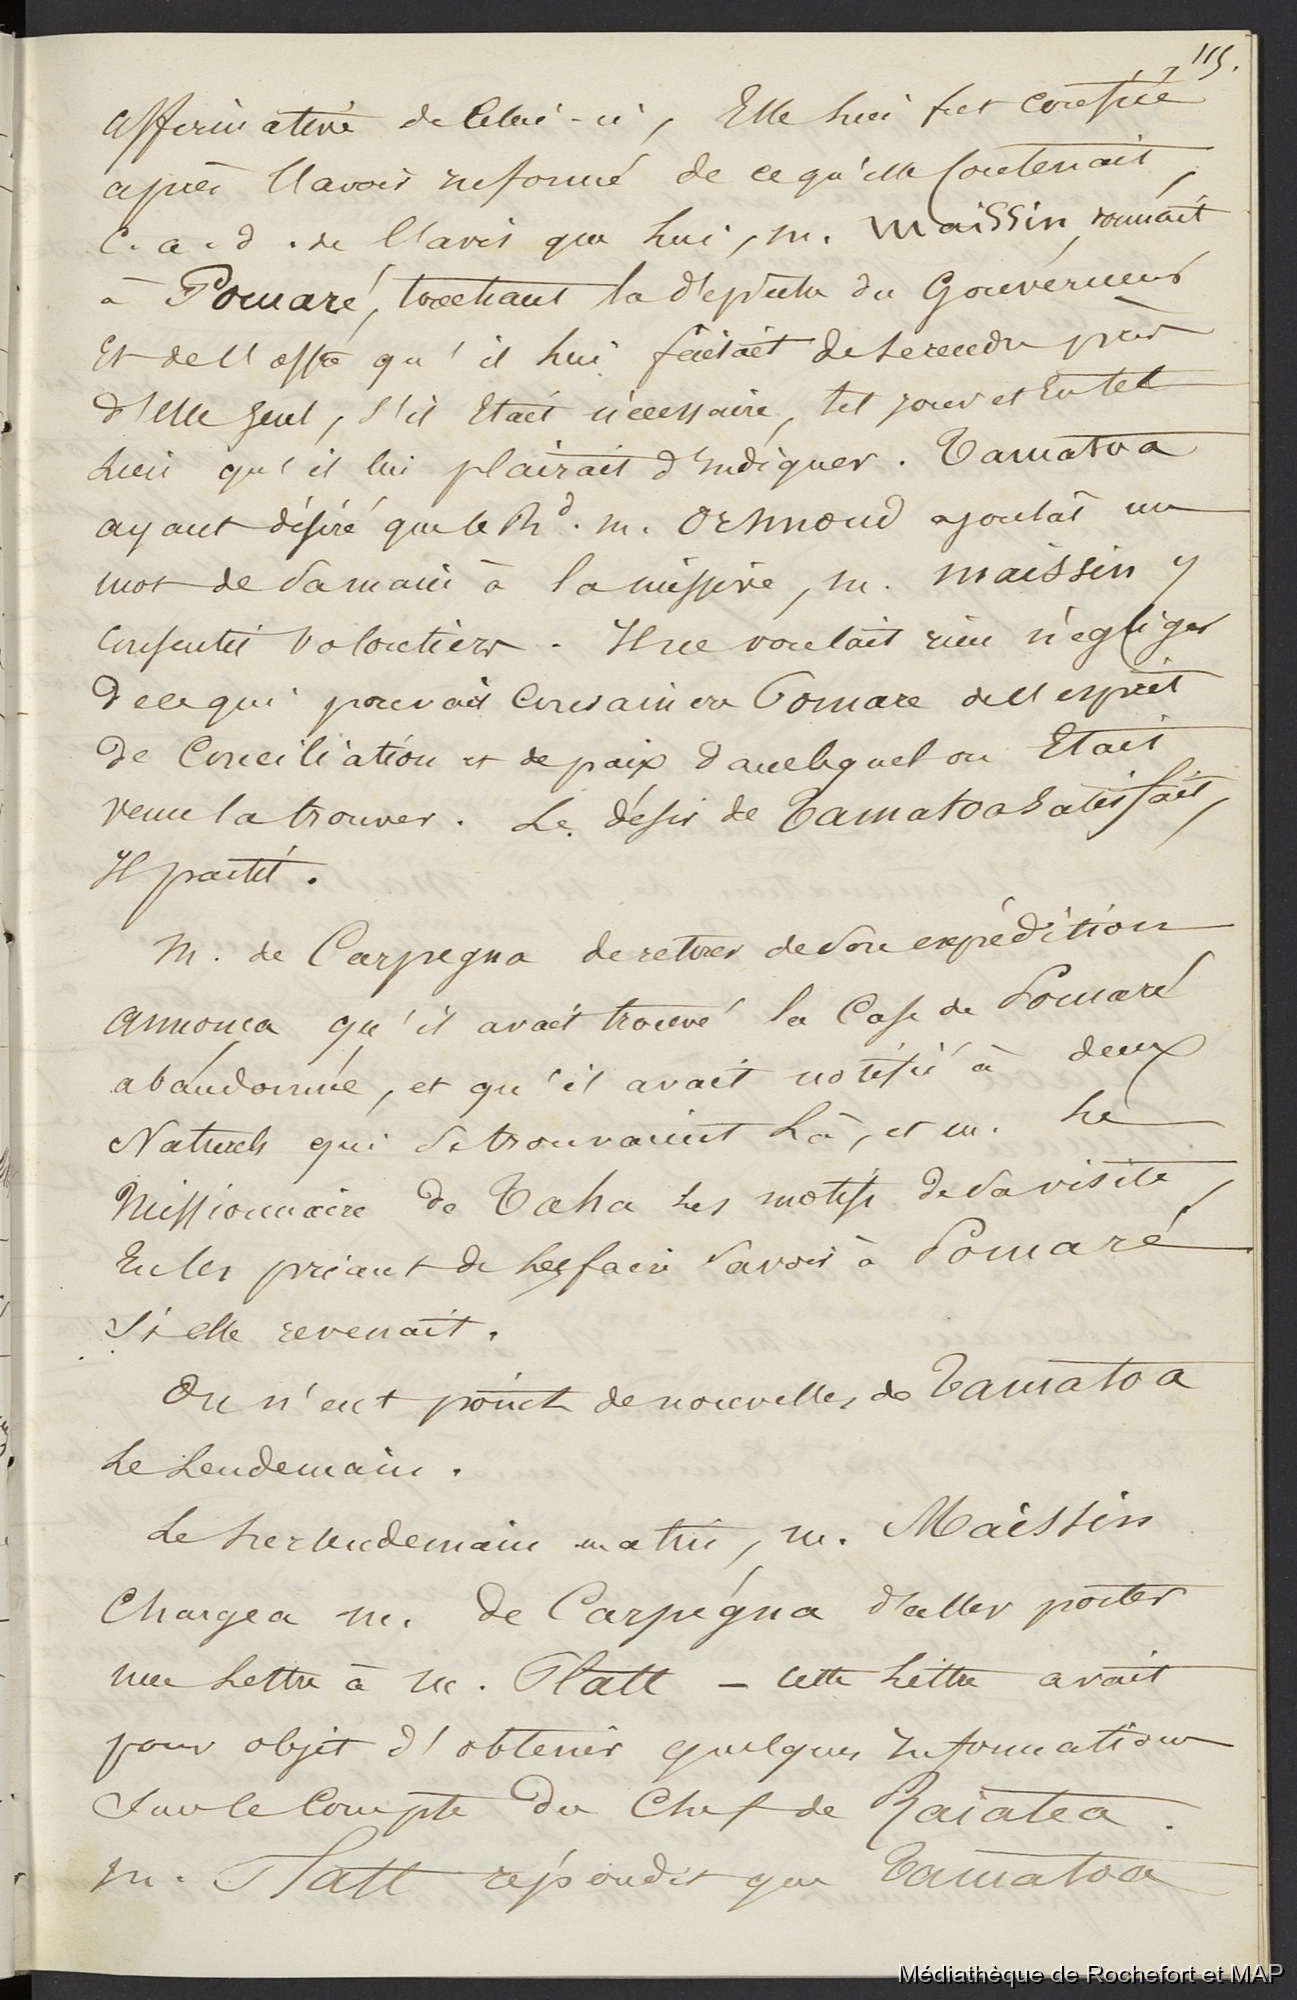 115.
affirmative de celui-ci, Elle lui fut confiée
après l'avoir informé de ce qu'elle contenait,
c. a. d. de l'avis que lui, m. Maissin, donnait
à Pomaré, touchant la dépêche du Gouverneur
Et de l'offre qu'il lui faisait de se rendre près
d'Elle seul, s'il Etait nécessaire, tel jour et En tel
Lieu qu'il lui plairait d'indiquer. Tamatoa
ayant désiré que le Rd. m. Orsmond ajoutât un
mot de sa main à la missive, m. Maissin y
consentit volontiers. Il ne voulait rien négliger
de ce qui pouvait convaincre Pomare de l'esprit
de Conciliation et de paix dans lequel on Etait
venu la trouver. Le désir de Tamatoa satisfait,
Il partit.
M. de Carpegna de retour de son expédition
annonça qu'il avait trouvé la Case de Pomaré
abandonnée, et qu'il avait notifié à deux
Naturels qui se trouvaient Là, et m. Le
Missionnaire de Taha Les motifs de sa visite,
En les priant de les faire savoir à Pomaré
Si elle revenait.
On n'eut point de nouvelles de Tamatoa
Le Lendemain.
Le surlendemain matin, m. Maissin
Chargea m. de Carpégna d'aller porter
une Lettre à m. Platt – cette Lettre avait
pour objet d'obtenir quelques Informations
Sur le Compte du Chef de Raiatea.
m. Platt répondit que Tamatoa
Médiathèque de Rochefort et MAP